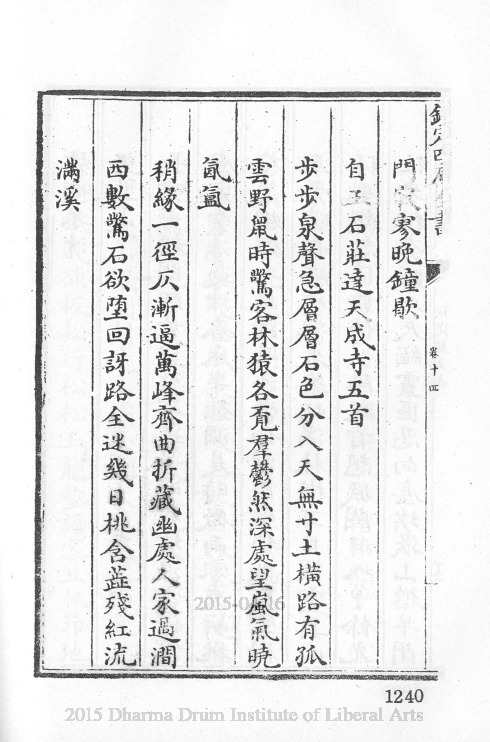 欽定四庫全書
卷十四
門寂寥晚鐘歇
自玉石莊達天成寺五首
步步泉聲急層層石色分入天無寸土橫路有孤
雲野鼠時驚客林猿各覓羣鬱然深處望嵐氣曉
氤氳
稍緣一徑仄漸逼萬峰齊曲折藏幽處人家過澗
西數驚石欲墮回訝路全迷幾日桃含蕋殘紅流
滿溪
2015-04-16
1240
2015 Dharma Drum Institute of Liberal Arts